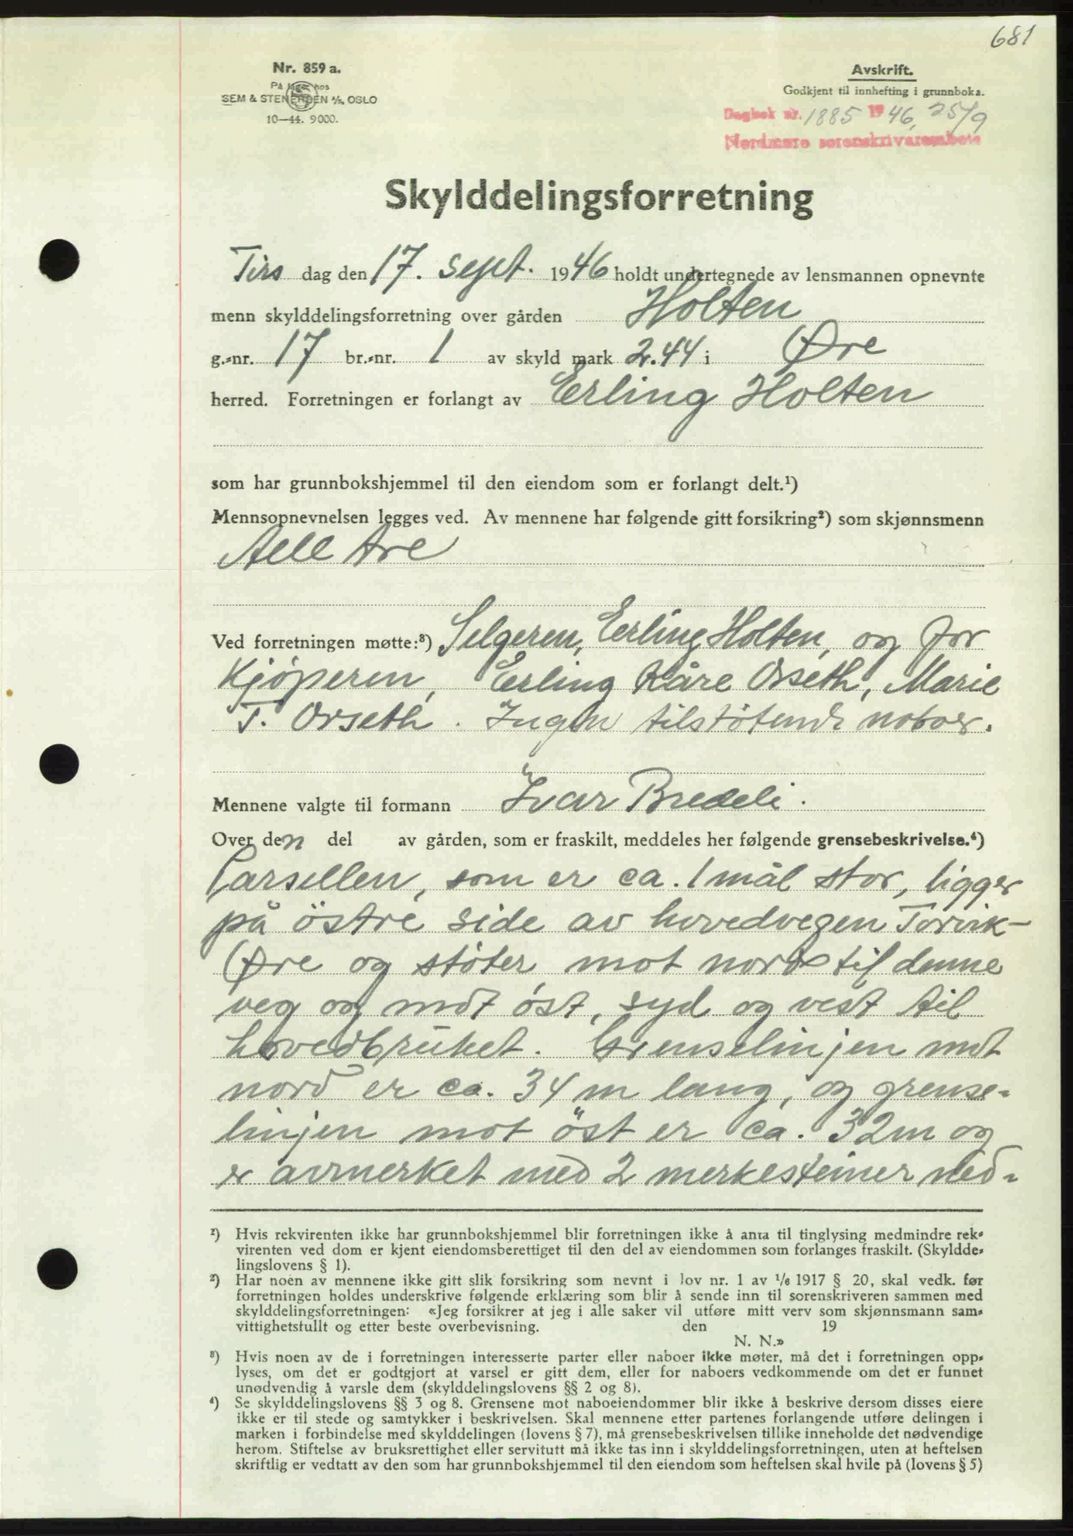 681
Nr. 859 a.
På lager hos
SEM & STENERSEN A/S, OSLO
10—44. 9000.
Avskrift.
Godkjent til innhefting i grunnboka.
Dagbok nr. 1885 1946, 25/9
Nordmøre sorenskrivarembete
Skylddelingsforretning
Tirs dag den 17. sept. 1946 holdt undertegnede av lensmannen opnevnte
menn skylddelingsforretning over gården Holten
g.-nr. 17 br.-nr. 1 av skyld mark 2.44 i Øre
herred. Forretningen er forlangt av Erling Holten
som har grunnbokshjemmel til den eiendom som er forlangt delt.¹)
Mennsopnevnelsen legges ved. Av mennene har følgende gitt forsikring²) som skjønnsmenn
Alle tre
Ved forretningen møtte:³) Selgeren, Erling Holten, og for
Kjöperen, Erling Kåre Orseth, Marie
T. Orseth. Ingen tilstötende naboer.
Mennene valgte til formann Ivar Bredeli.
Over den del av gården, som er fraskilt, meddeles her følgende grensebeskrivelse.⁴)
Parsellen, som er ca. 1 mål stor, ligger
på östre side av hovedvegen Torvik-
Øre og støter mot nord til denne
veg og mot öst, syd og vest til
hovedbruket. Grenselinjen mot
nord er ca. 34 m lang, og grense-
linjen mot öst er ca. 32m og
er avmerket med 2 merkesteiner ned-
¹) Hvis rekvirenten ikke har grunnbokshjemmel blir forretningen ikke å anta til tinglysing medmindre rek-
virenten ved dom er kjent eiendomsberettiget til den del av eiendommen som forlanges fraskilt. (Skyldde-
lingslovens § 1).
²) Har noen av mennene ikke gitt slik forsikring som nevnt i lov nr. 1 av 1/6 1917 § 20, skal vedk. før
forretningen holdes underskrive følgende erklæring som blir å sende inn til sorenskriveren sammen med
skylddelingsforretningen: «Jeg forsikrer at jeg i alle saker vil utføre mitt verv som skjønnsmann sam-
vittighetsfullt og etter beste overbevisning. den 19
N. N.»
³) Hvis noen av de i forretningen interesserte parter eller naboer ikke møter, må det i forretningen opp-
lyses, om det er godtgjort at varsel er gitt dem, eller for naboers vedkommende om det er funnet
unødvendig å varsle dem (skylddelingslovens §§ 2 og 8).
⁴) Se skylddelingslovens §§ 3 og 8. Grensene mot naboeiendommer blir ikke å beskrive dersom disses eiere
ikke er til stede og samtykker i beskrivelsen. Skal mennene etter partenes forlangende utføre delingen i
marken i forbindelse med skylddelingen (lovens § 7), må grensebeskrivelsen tillike inneholde det nødvendige
herom. Stiftelse av bruksrettighet eller servitutt må ikke tas inn i skylddelingsforretningen, uten at heftelsen
skriftlig er vedtatt av den som har grunnbokshjemmel til den eiendom som heftelsen skal hvile på (lovens § 5)